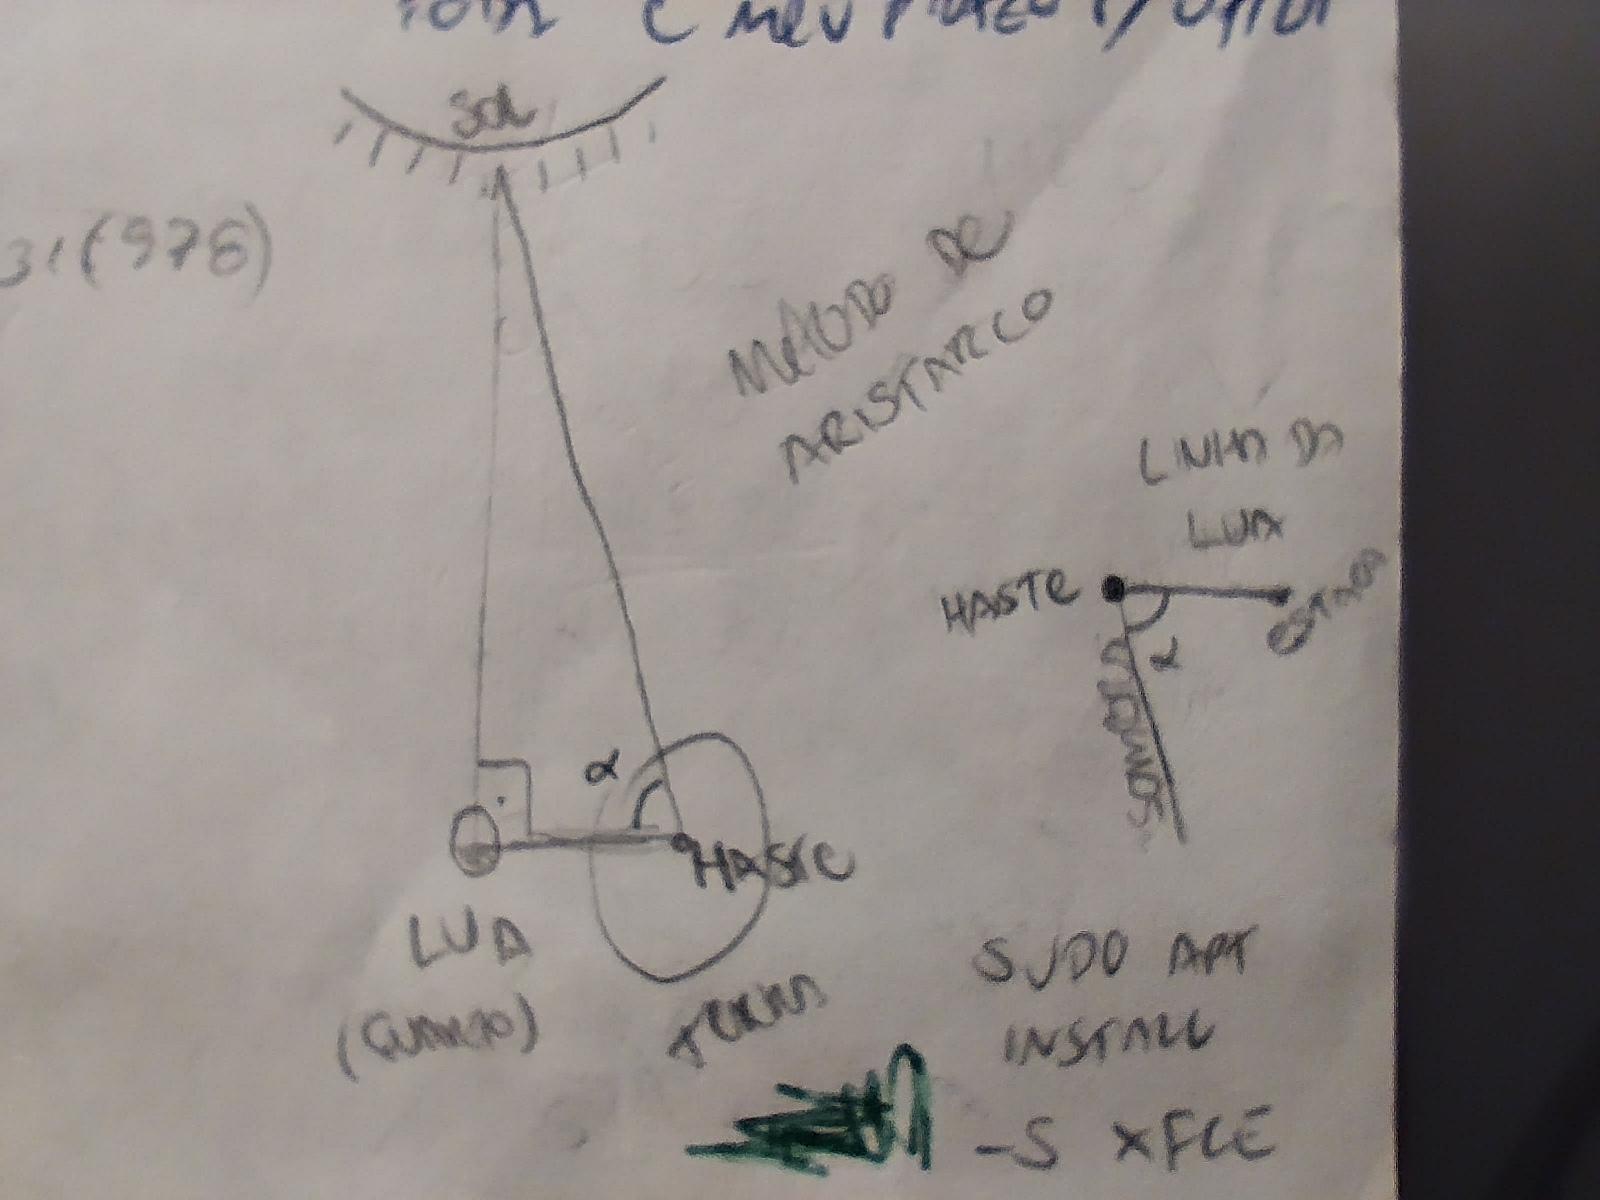 SOL
31(976)
MÉTODO DE
ARISTARCO
LINHA DA
LUA
HASTE
ESTACA
α
SOMBRA
α
HASTE
LUA
(QUARTO)
TERRA
SUDO APT
INSTALL
-S XFCE